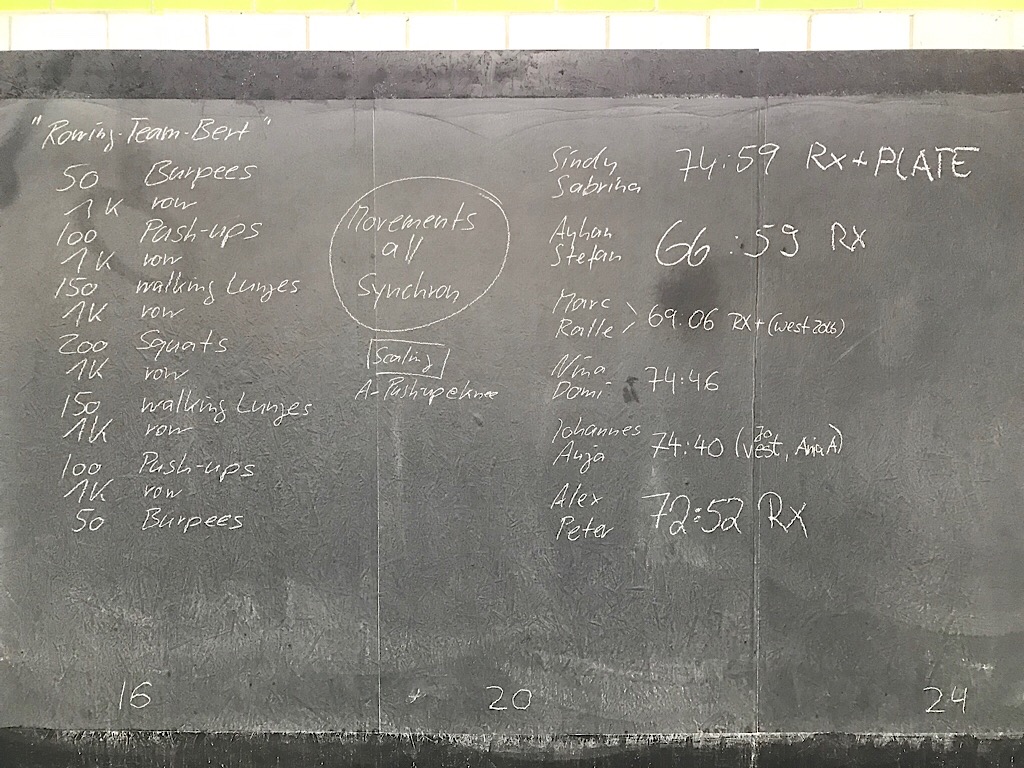 "Rowing-Team-Bert"
50 Burpees
1K row
100 Push-ups
1K row
150 walking Lunges
1K row
200 Squats
1K row
150 walking Lunges
1K row
100 Push-ups
1K row
50 Burpees
Movements
all
Synchron
Scaling
A-Push-up
Sindy
Sabrina
74:59 RX+PLATE
Ayhan
Stefan
66:59 RX
Marc
Ralle
69.06 RX+(west 20
Nina
Domi
74:46
Johannes
Anja
74:40 (Jo Vest, Anja A)
Alex
Peter
72:52 RX
16
20
24